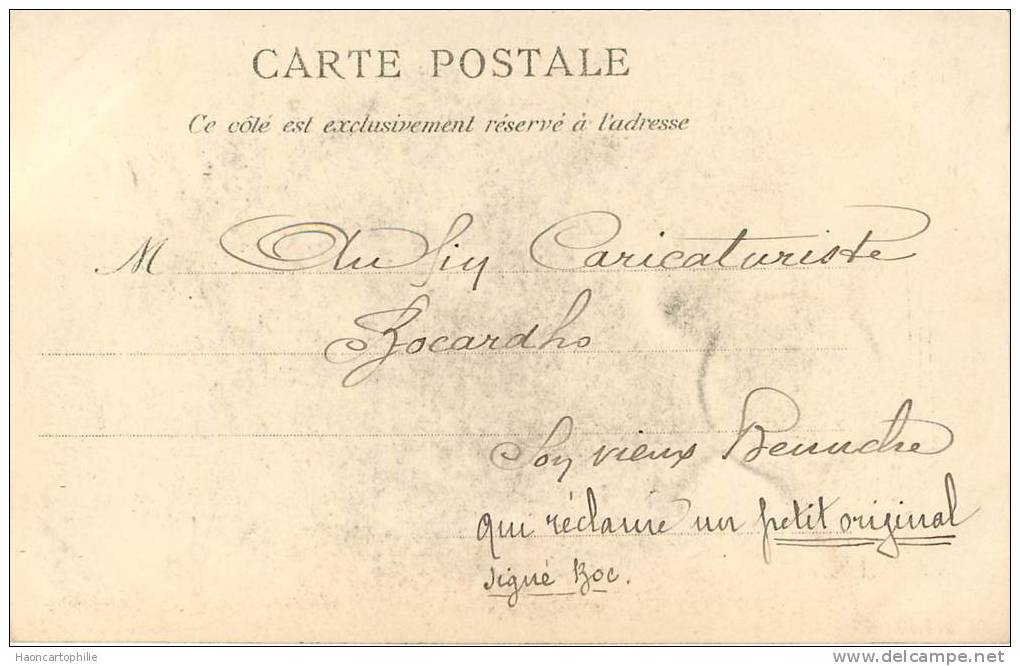 CARTE POSTALE
Ce côté est exclusivement réservé à l'adresse
M Au fin Caricaturiste
Bocardho
Son vieux
qui réclame un petit original
signé Boc.
Haoncartophile
www.delcampe.net